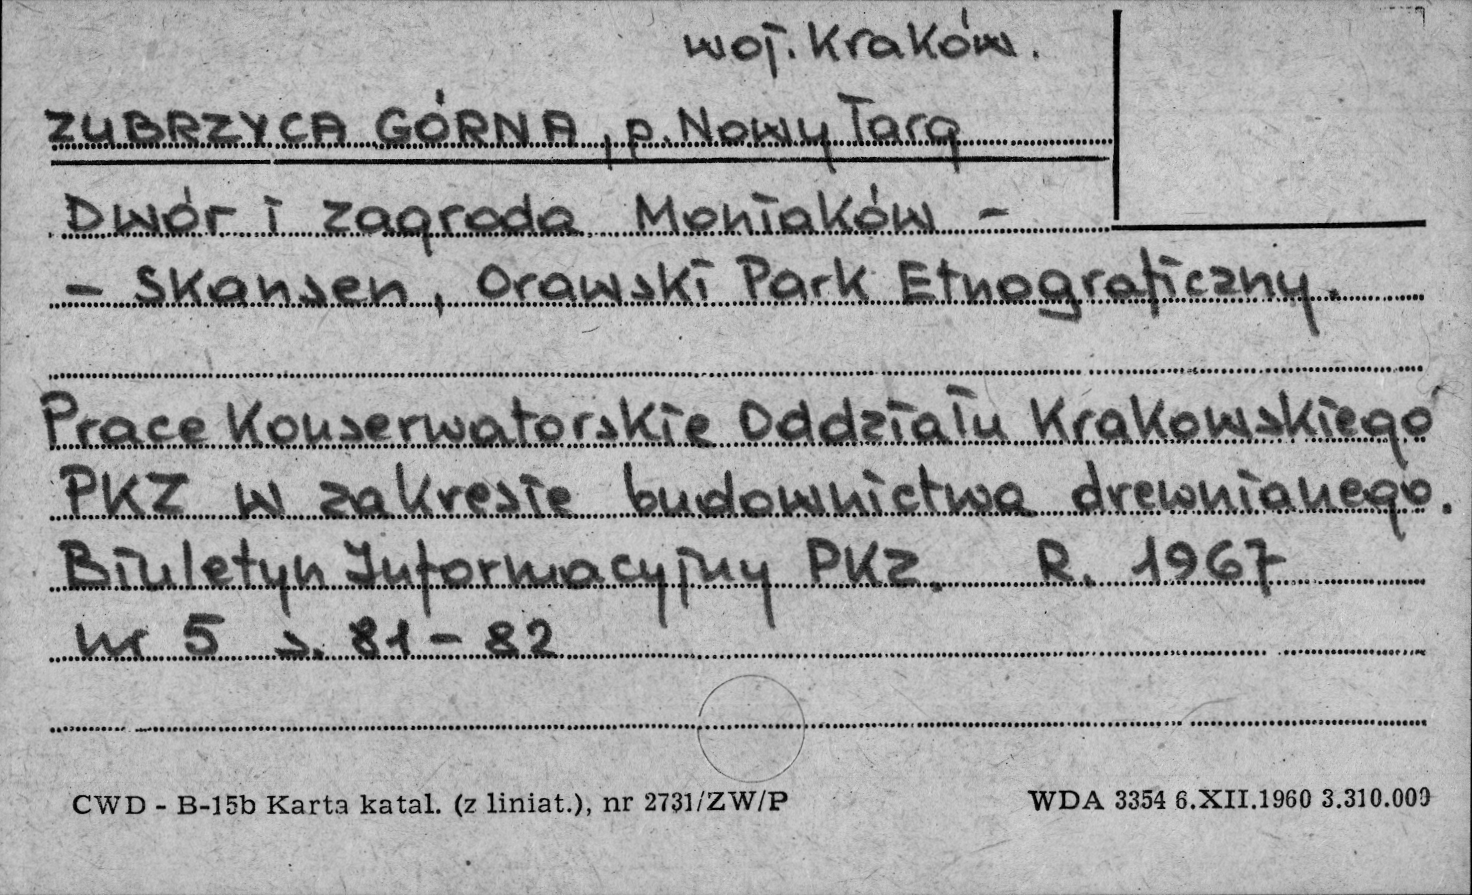 woj. Kraków.
ZUBRZYCA GÓRNA, p. Nowy Targ
Dwór i zagroda Moniaków -
- Skansen, Orawski Park Etnograficzny.
Prace Konserwatorskie Oddziału Krakowskiego
PKZ w zakresie budownictwa drewnianego.
Biuletyn Informacyjny PKZ. R. 1967
nr 5 s. 81-82
CWD - B-15b Karta katal. (z liniat.), nr 2731/ZW/P
WDA 3354 6.XII.1960 3.310.000